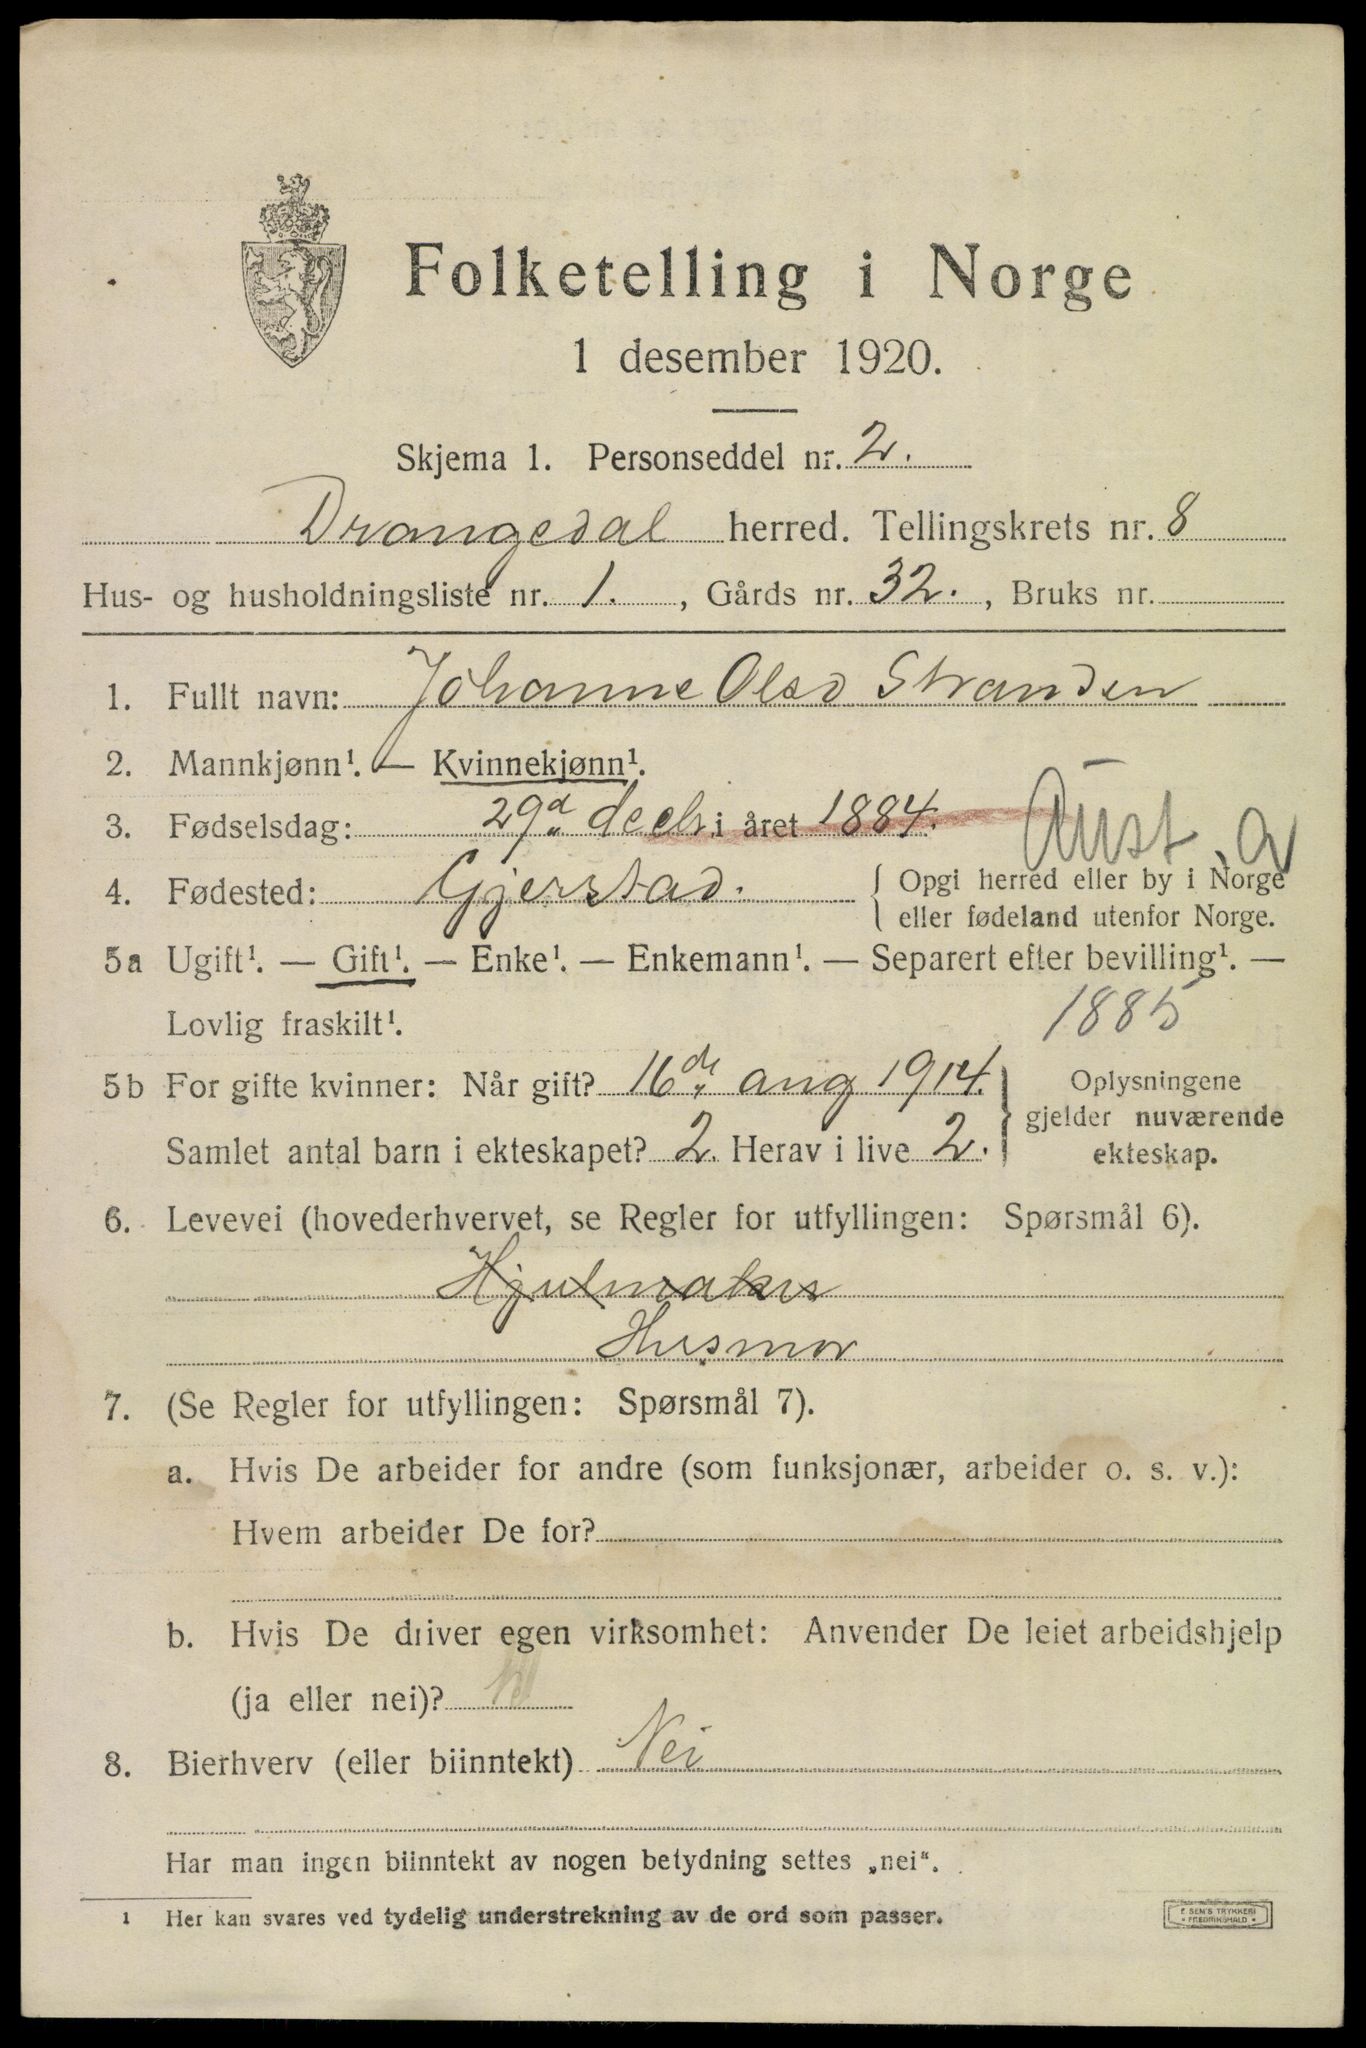 Folketelling i Norge
1 desember 1920.
Skjema 1. Personseddel nr. 2.
Drangedal herred. Tellingskrets nr. 8
Hus- og husholdningsliste nr. 1. , Gårds nr. 32. , Bruks nr.
1. Fullt navn: Johanne Olsd Stranden
2. Mannkjønn¹. — Kvinnekjønn¹.
3. Fødselsdag: 29d decbr. i året 1884.
Aust. a
4. Fødested: Gjerstad. { Opgi herred eller by i Norge
eller fødeland utenfor Norge.
5a Ugift¹. — Gift¹. — Enke¹. — Enkemann¹. — Separert efter bevilling¹. —
Lovlig fraskilt¹. 1885
5b For gifte kvinner: Når gift? 16de aug 1914. } Oplysningene
gjelder nuværende
Samlet antal barn i ekteskapet? 2. Herav i live 2. ekteskap.
6. Levevei (hovederhvervet, se Regler for utfyllingen: Spørsmål 6).
Hjulmaker
Husmor
7. (Se Regler for utfyllingen: Spørsmål 7).
a. Hvis De arbeider for andre (som funksjonær, arbeider o. s. v.):
Hvem arbeider De for?
b. Hvis De driver egen virksomhet: Anvender De leiet arbeidshjelp
(ja eller nei)?
8. Bierhverv (eller biinntekt) Nei
Har man ingen biinntekt av nogen betydning settes „nei“.
1 Her kan svares ved tydelig understrekning av de ord som passer.
E. SEM'S TRYKKERI
FREDRIKSHALD